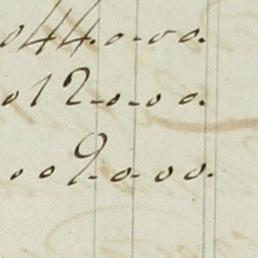 044.0-00.
012-0-00.
..09.-0-00.